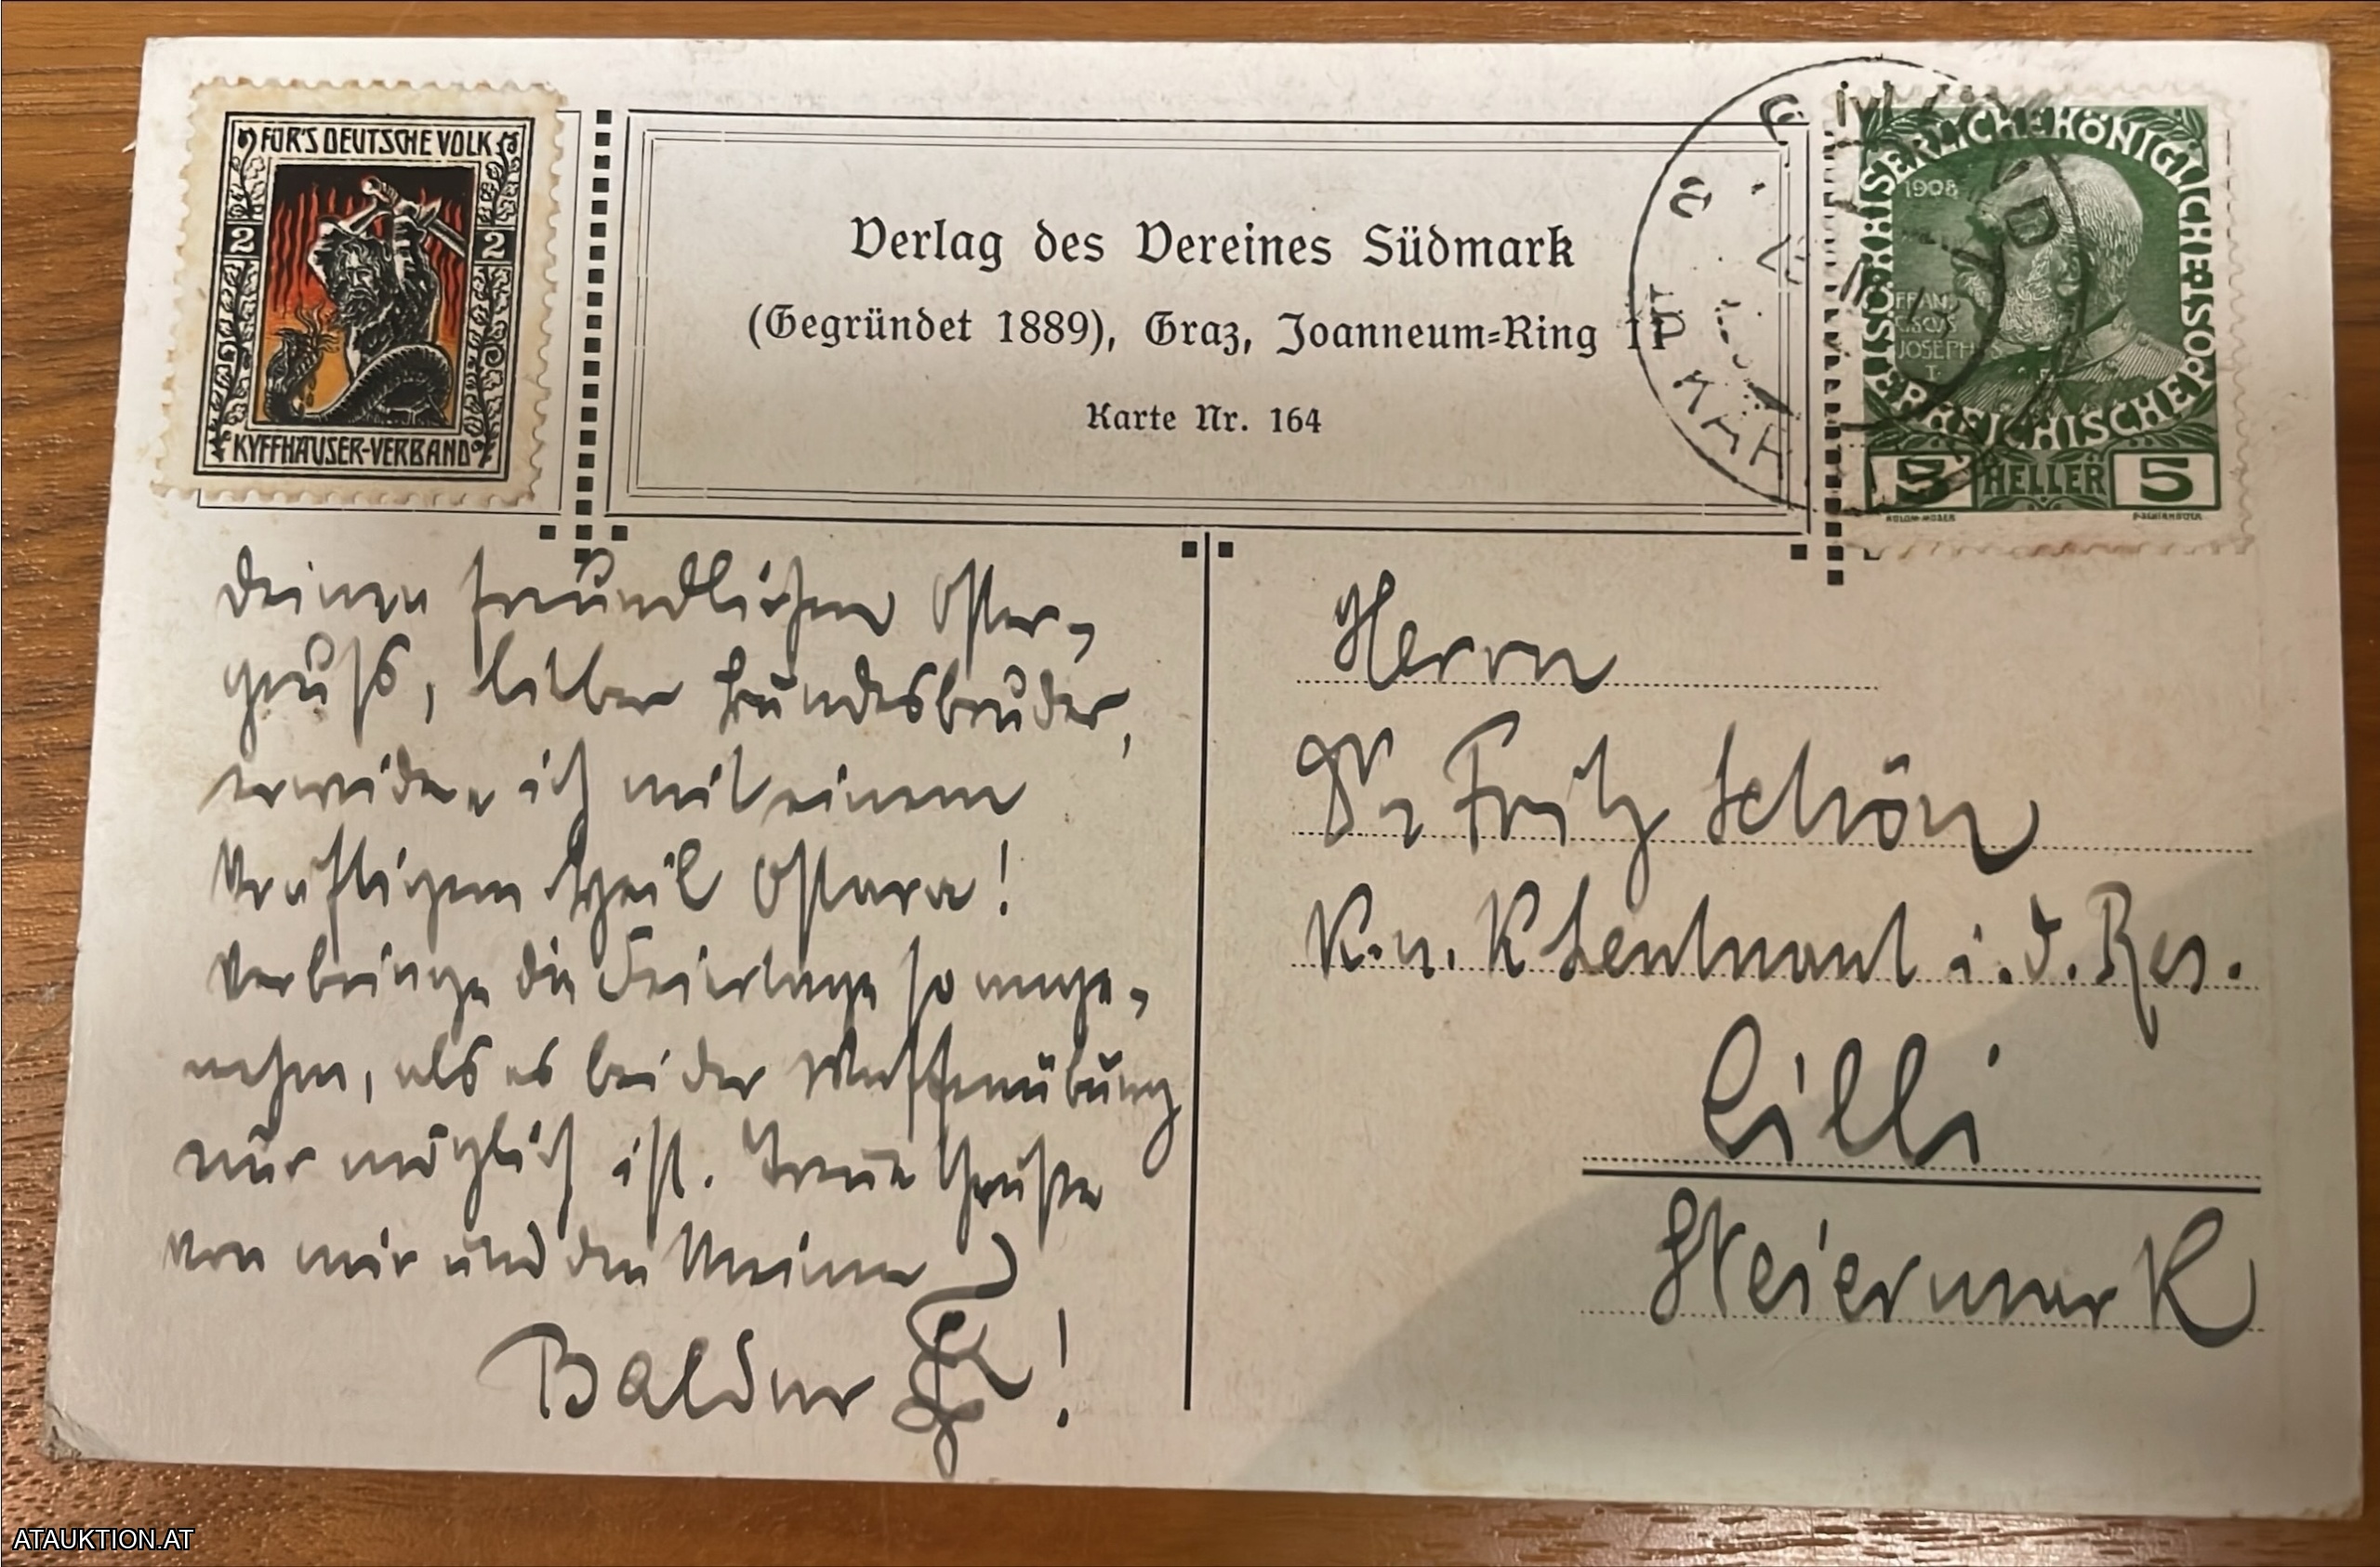 FÜR'S DEUTSCHE VOLK
2 2
KYFFHÄUSER-VERBAND
Verlag des Vereines Südmark
(Gegründet 1889), Graz, Joanneum-Ring 11
Karte Nr. 164
KAISERLICHE KÖNIGLICHE ÖSTERREICHISCHE POST
1908
FRAN
CISCVS
JOSEPHVS
I.
5 HELLER 5
Deinen freundlichen Oster-
gruß, lieber Bundesbruder,
erwidere ich mit einem
kräftigen Heil Ostara!
Verbringe die Feiertage so ange-
nehm, als es bei der Waffenübung
nur möglich ist. Treue Grüße
von mir und den Meinen
Baldur !
Herrn
Dr Fritz Schön
K. u. K Leutnant i. d. Res.
Cilli
Steiermark
ATAUKTION.AT